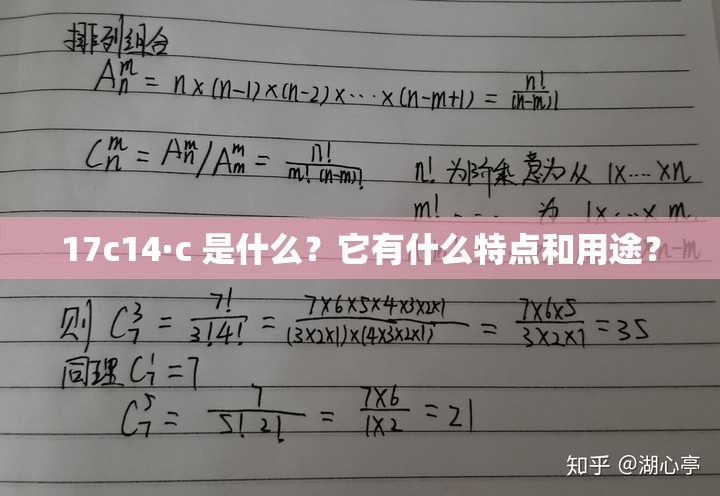 排列组合
Aₙᵐ = n×(n-1)×(n-2)×···×(n-m+1) = n!/(n-m)!
Cₙᵐ = Aₙᵐ/Aₘᵐ = n!/m!(n-m)!
n! 为阶乘意为从 1×····×n
m! · · · · 为 1×···×m
17c14·c 是什么？它有什么特点和用途？
n-m
则 C₇³ = 7!/3!4! = 7×6×5×4×3×2×1/(3×2×1)×(4×3×2×1) = 7×6×5/3×2×1 = 35
同理 C₇¹ = 7
C₇⁵ = 7/5! 2! = 7×6/1×2 = 21
知乎 @湖心亭